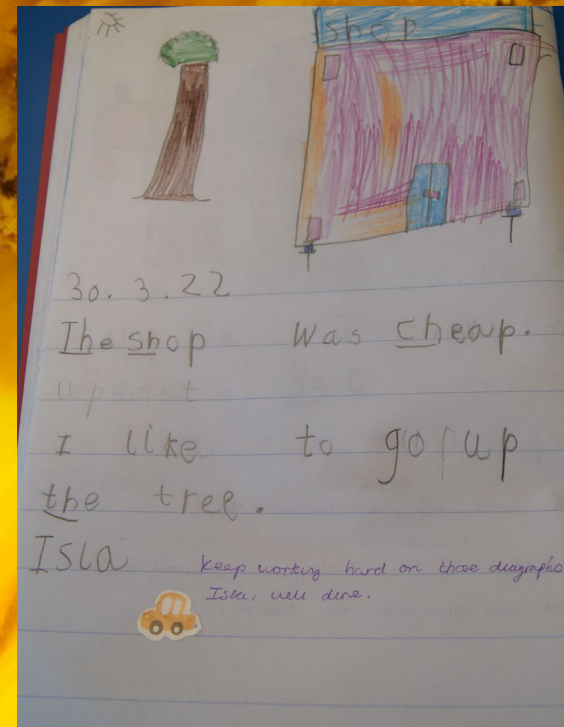 shop
30.3.22
The shop was cheap.
I like to go up
the tree.
Isla
Keep working hard on those diagraphs
Isla, well done.